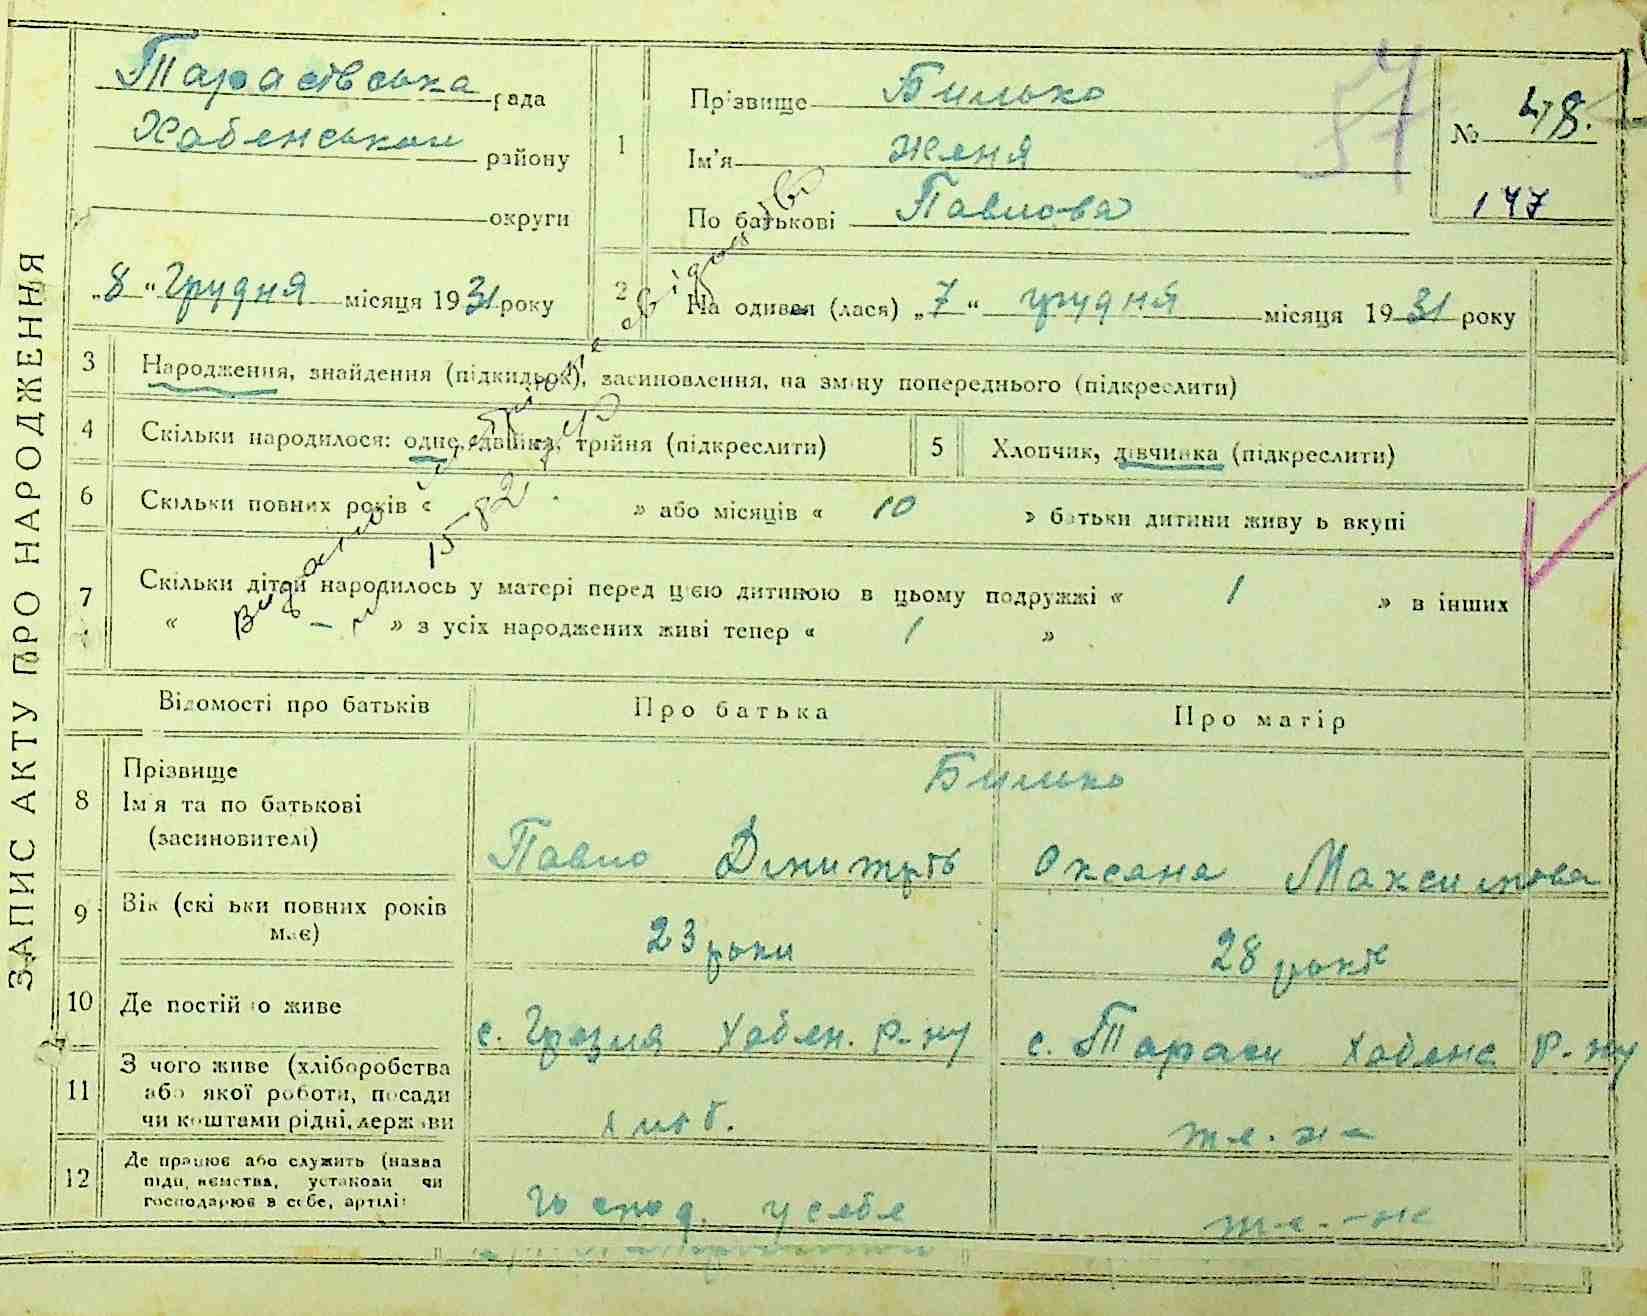 ЗАПИС АКТУ ПРО НАРОДЖЕННЯ
Тарасівська рада
Хабенськой району
округи
„8“ Грудня місяця 1931 року
1
Прізвище Билько
Ім'я Женя
По батькові Павлова
№ 48.
177
57
2 На одився (лася) „7“ грудня місяця 1931 року
3 Народження, знайдення (підкидьок), засиновлення, на зміну попереднього (підкреслити)
4 Скільки народилося: одне, двійка, трійня (підкреслити)
5 Хлопчик, дівчинка (підкреслити)
6 Скільки повних років « » або місяців « 10 » батьки дитини живу ь вкупі
7 Скільки дітей народилось у матері перед цією дитиною в цьому подружжі « 1 » в інших
« – » з усіх народжених живі тепер « 1 »
Видано
15 82
Відомості про батьків Про батька Про матір
8 Прізвище
Ім'я та по батькові
(засиновителі)
Билько
Павло Дмитрів Оксана Максимова
9 Вік (скі ьки повних років має)
23 роки 28 років
10 Де постій о живе
с. Грезля Хабен. р-ну с. Тараси Хабенс р-ну
11 З чого живе (хліборобства
або якої роботи, посади
чи коштами рідні, держави
хліб. т.-ж
12 Де працює або служить (назва
підприємства, установи чи
господарює в себе, артілі
господ. у себе т.-ж